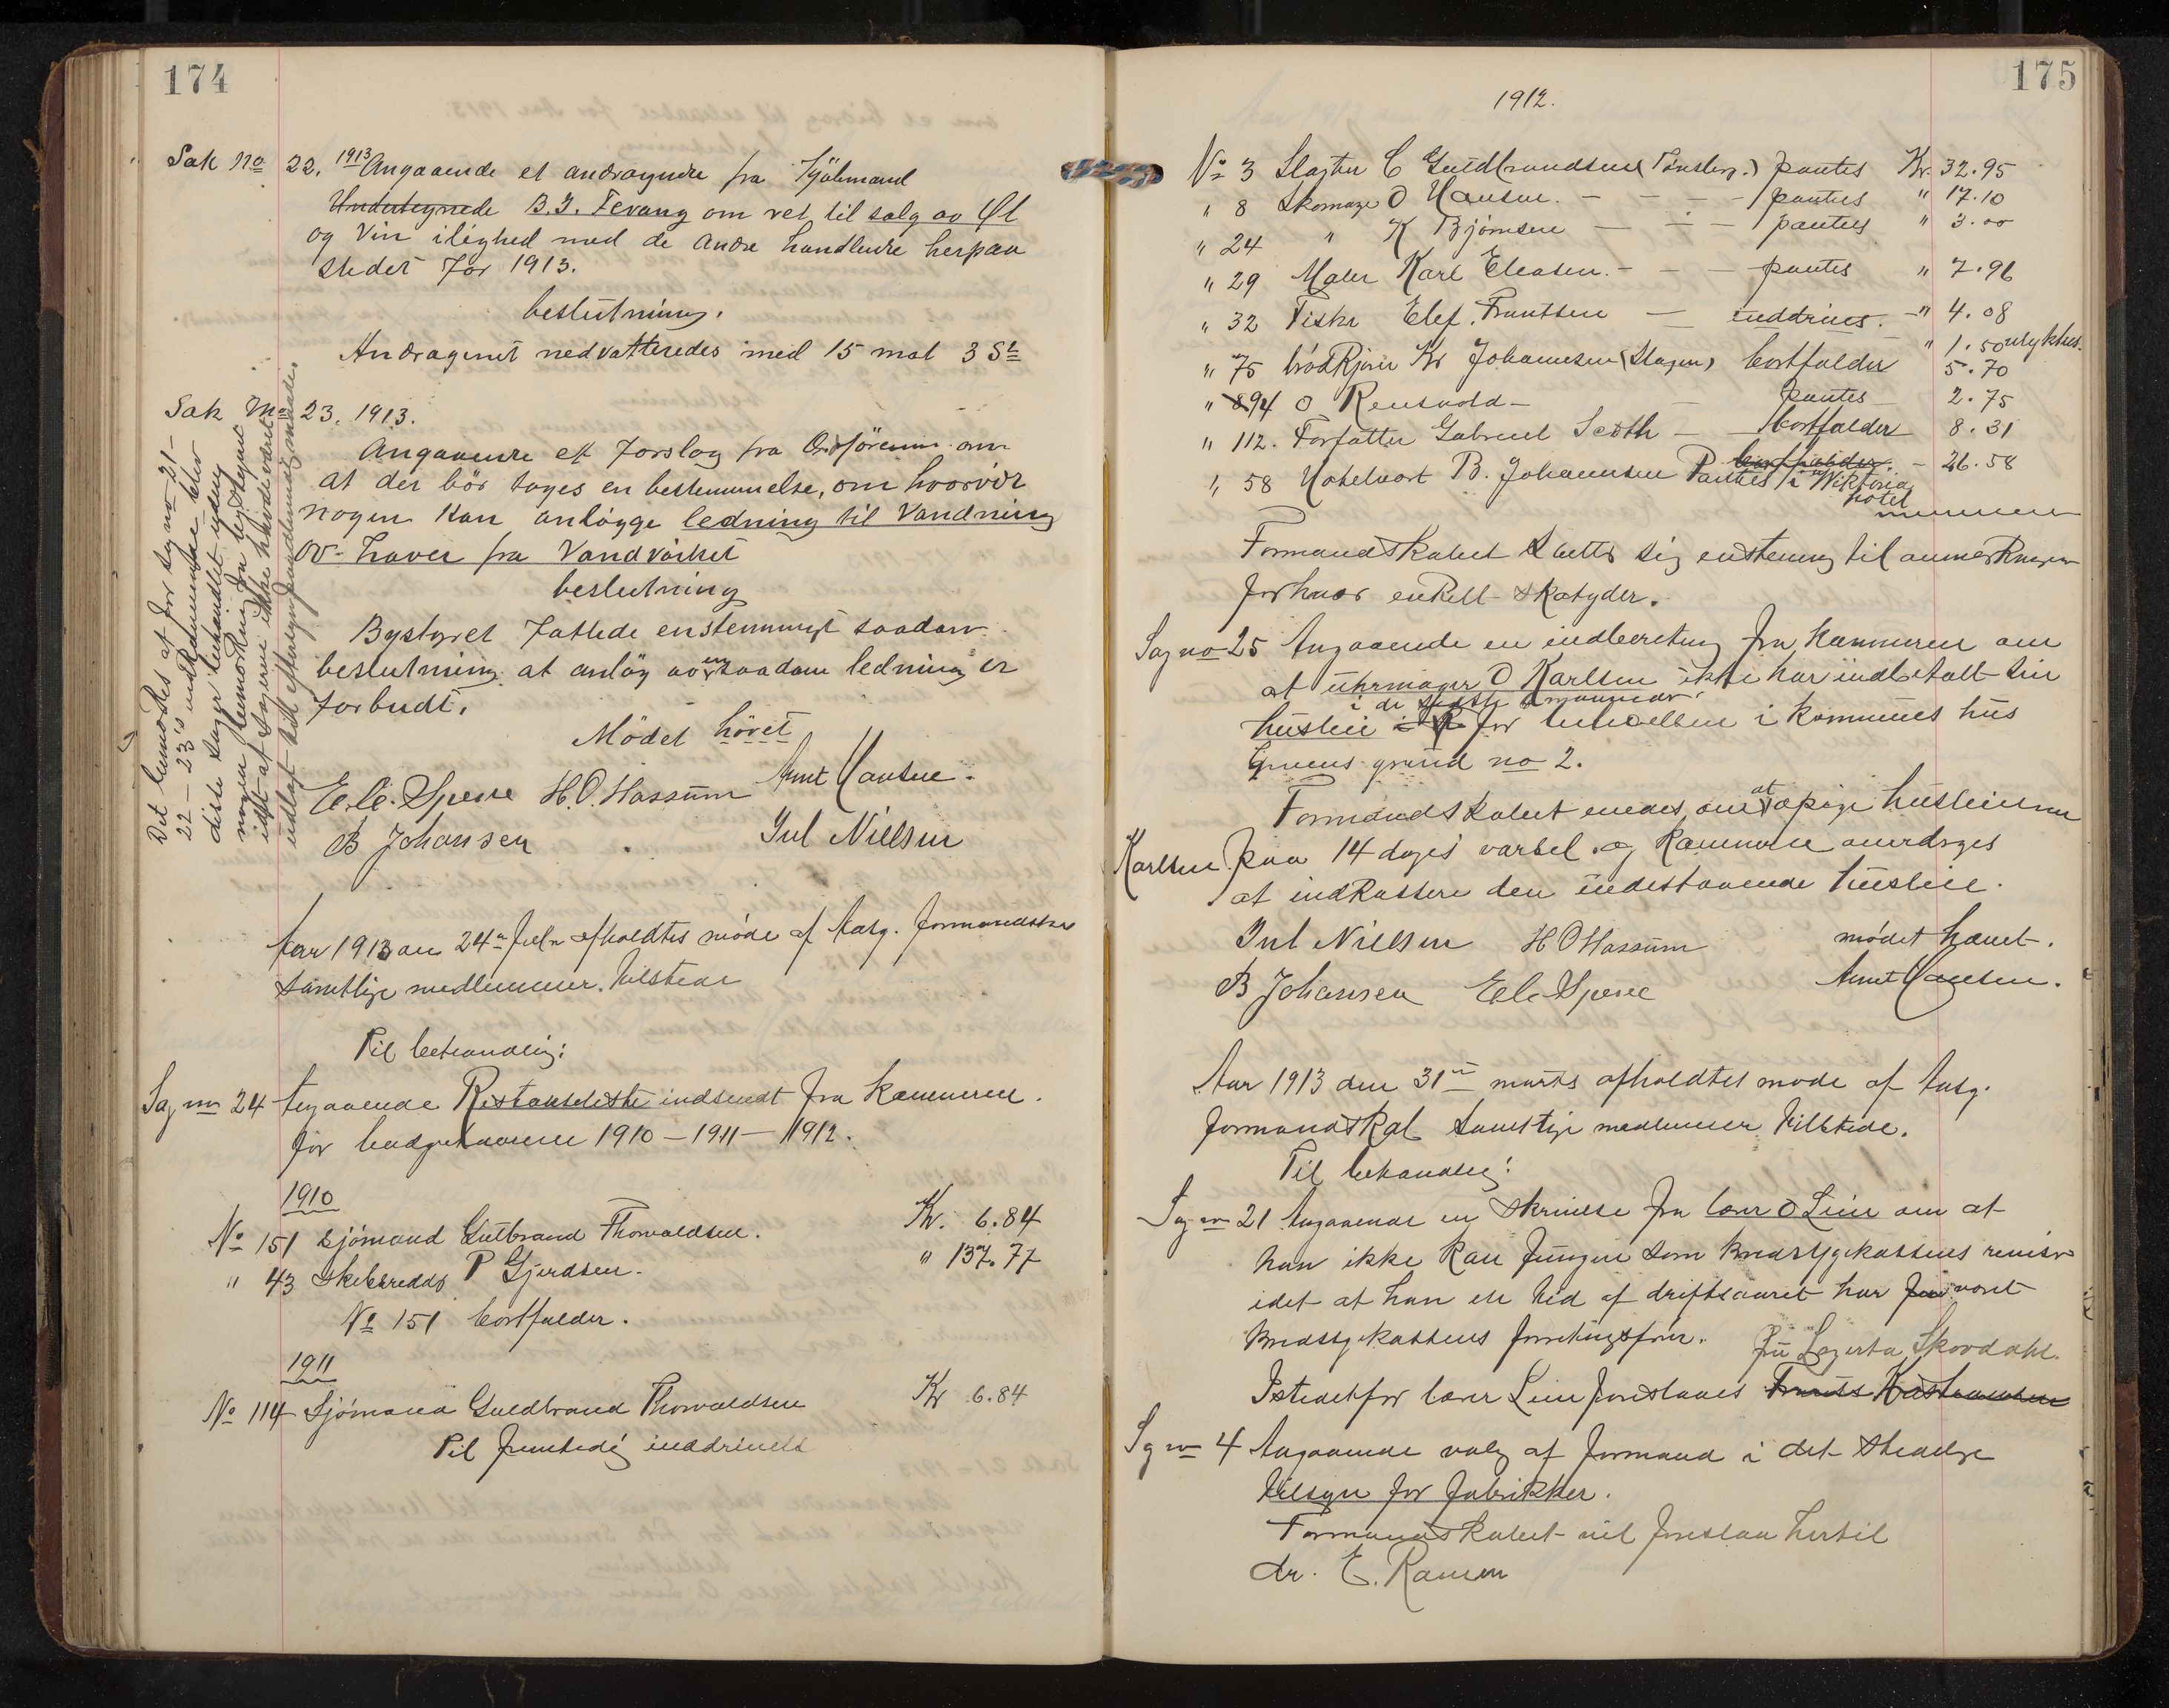 174
Sak No 22. 1913 Angaaende et andragende fra Kjöbmand
Undertegnede B. J. Fevang om ret til salg av Øl
og Vin i lighed med de andre handlende herpaa
stedet for 1913.
beslutning.
Andragenet nedvotteredes med 15 mot 3 St
Sak No 23. 1913.
Angaaende et forslag fra Ordföreren om
at der bör tages en bestemmelse, om hvorvidt
nogen kan anlägge ledning til Vandning
av haver fra Vandvärket
beslutning
Bystyret fattede enstemmigt saadan
beslutning at anläg av en saadan ledning er
forbudt.
Mödet hövet
E. C. Sperre H. O. Hassum Arnt Hansen.
B Johansen Jul Nielsen
Det bemerkes at for sag no 21-
22 - 23's vedkommende blev
disse sager behandlet uden
nogen bemerkning fra bystyret
idet at sagerne ikke havde været
udlagt til eftersyn paa lovmæssig maade.
Aar 1913 den 24de febr afholdtes møde af Aasg. formandskap
samtlige medlemmer tilstede
Til behandling:
Sag no 24 Angaaende Restanseliste indsendt fra Kæmneren
for budgetaarene 1910 - 1911 - 1912.
1910
No 151 Sjömand Gulbrand Thorvaldsen. Kr. 6.84
" 43 Skibsreder P Gjerdsen. " 137.77
No 151 bortfalder.
1911
No 114 Sjömand Guldbrand Thorvaldsen Kr 6.84
Til fremtidig inddrivelse
175
1912.
No 3 Slagter C Guldbrandsen (Tønsberg.) pantes Kr. 32.95
" 8 Skomager O Hansen. - - - pantes " 17.10
" 24 " K Bjørnsen - - - pantes " 3.00
" 29 Maler Karl Eleasen. - - - pantes " 7.96
" 32 Fisker Elef. Frantsen - inddrives. - " 4.08
" 75 brødkjører Kr Johannesen (Slagen) bortfalder " 1.50 ulyktes.
5.70
" 894 O Rensvold - pantes 2.75
" 112. Forfatter Gabriel Scoth - bortfalder 8.31
" 58 Hotelvert B. Johannesen Pantes i Wiktoria bortfalder. - 26.58
hotel
Formandskabet slutter sig enstemig til anmerkningen
for hver enkelt skatyder.
Sag no 25 Angaaende en indberetning fra Kæmneren om
at uhrmager O Karlsen ikke har indbetalt sin
i de sidste 2 maaneder.
husleie for beboelsen i kommunes hus
Grevens grund no 2.
Formandskabet enedes om at opsige husleieren
Karlsen paa 14 dages varsel og Kæmneren anerdrges
at indkassere den indestaaende husleie.
Jul Nielsen H O Hassum mødet hævet.
B Johansen E C Sperre Arnt Hansen.
Aar 1913 den 31te marts afholdtes møde af Aasg.
formandskab samtlige medlemmer tilstede.
Til behandling:
Sag no 21 Angaaende en skrivelse fra lærer O Lein om at
han ikke kan fungere som kredssygekassens revisor
idet at han en tid af driftsaaret har været
kredssygekassens forretningsfører. fru Lagerta Skovdahl.
Istedetfor lærer Lein foreslaaes Frants Kristiansen
Sag no 4 Angaaende valg af formand i det stedlige
tilsyn for fabrikker.
Formandskabet vil foreslaa hertil
dr. E. Ramm